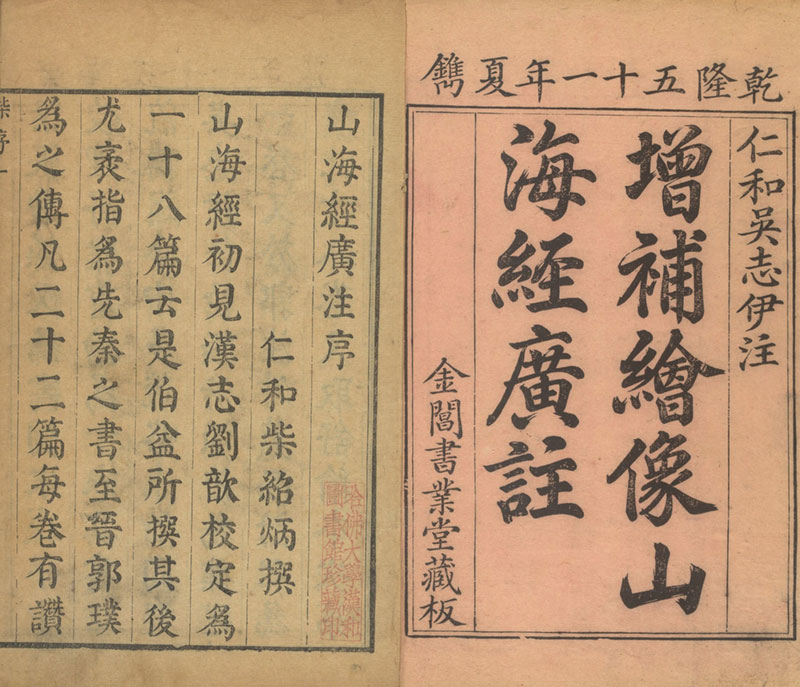 乾隆五十一年夏鐫
仁和吳志伊注
增補繪像山
海經廣註
金閶書業堂藏板
山海經廣注序
仁和柴紹炳撰
哈佛大學漢和
圖書館珍藏印
山海經初見漢志劉歆校定爲
一十八篇云是伯益所撰其後
尤袤指爲先秦之書至晉郭璞
爲之傳凡二十二篇每卷有讚
柴序一